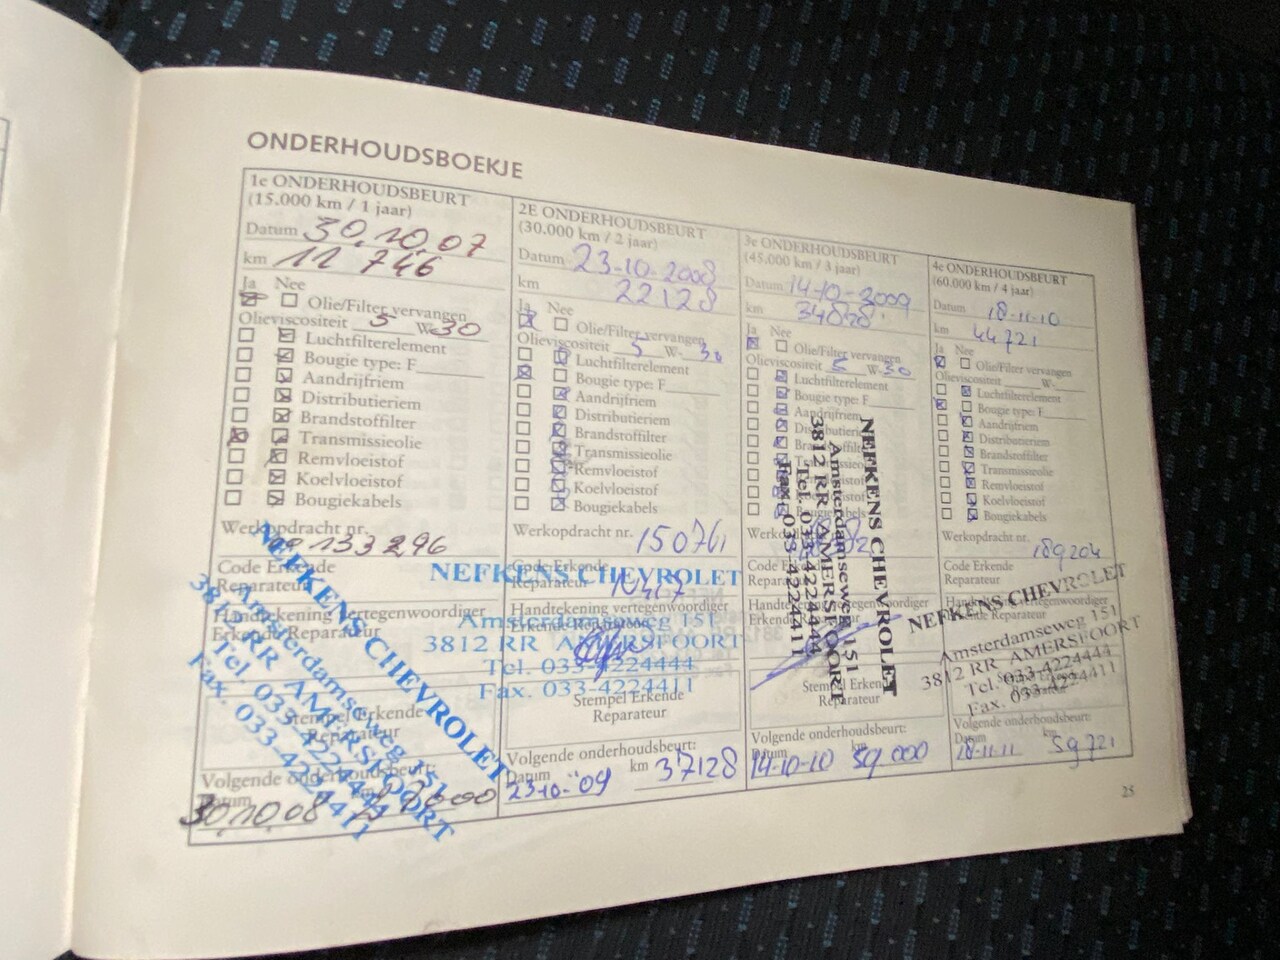 ONDERHOUDSBOEKJE
1e ONDERHOUDSBEURT
(15.000 km / 1 jaar)
Datum 30.10.07
km 11 746
Ja Nee
Olie/Filter vervangen
Olieviscositeit 5 W-30
Luchtfilterelement
Bougie type: F
Aandrijfriem
Distributieriem
Brandstoffilter
Transmissieolie
Remvloeistof
Koelvloeistof
Bougiekabels
Werkopdracht nr.
133296
Code Erkende
Reparateur
Handtekening vertegenwoordiger
Erkende Reparateur
NEFKENS CHEVROLET
Amsterdamseweg 151
3812 RR AMERSFOORT
Tel. 033-4224444
Fax. 033-4224411
Stempel Erkende
Reparateur
Volgende onderhoudsbeurt:
Datum km
30.10.08
2E ONDERHOUDSBEURT
(30.000 km / 2 jaar)
Datum 23-10-2008
km 22128
Ja Nee
Olie/Filter vervangen
Olieviscositeit 5 W-30
Luchtfilterelement
Bougie type: F
Aandrijfriem
Distributieriem
Brandstoffilter
Transmissieolie
Remvloeistof
Koelvloeistof
Bougiekabels
Werkopdracht nr. 150761
Code Erkende
Reparateur
NEFKENS CHEVROLET
Handtekening vertegenwoordiger
Erkende Reparateur
Amsterdamseweg 151
3812 RR AMERSFOORT
Tel. 033-4224444
Fax. 033-4224411
Stempel Erkende
Reparateur
Volgende onderhoudsbeurt:
Datum km
23-10-'09 37128
3e ONDERHOUDSBEURT
(45.000 km / 3 jaar)
Datum 14-10-2009
km 34028
Ja Nee
Olie/Filter vervangen
Olieviscositeit 5 W-30
Luchtfilterelement
Bougie type: F
Aandrijfriem
Distributieriem
Brandstoffilter
Transmissieolie
Remvloeistof
Koelvloeistof
Bougiekabels
Code Erkende
Reparateur
Handtekening vertegenwoordiger
Erkende Reparateur
NEFKENS CHEVROLET
Amsterdamseweg 151
3812 RR AMERSFOORT
Tel. 033-4224444
Fax. 033-4224411
Stempel Erkende
Reparateur
Volgende onderhoudsbeurt:
Datum km
14-10-10 59000
4e ONDERHOUDSBEURT
(60.000 km / 4 jaar)
Datum 18-11-10
km 44721
Ja Nee
Olie/Filter vervangen
Olieviscositeit W-
Luchtfilterelement
Bougie type: F
Aandrijfriem
Distributieriem
Brandstoffilter
Transmissieolie
Remvloeistof
Koelvloeistof
Bougiekabels
Werkopdracht nr.
189204
Code Erkende
Reparateur
NEFKENS CHEVROLET
Handtekening vertegenwoordiger
Erkende Reparateur
Amsterdamseweg 151
3812 RR AMERSFOORT
Tel. 033-4224444
Fax. 033-4224411
Volgende onderhoudsbeurt:
Datum km
18-11-11 59721
25